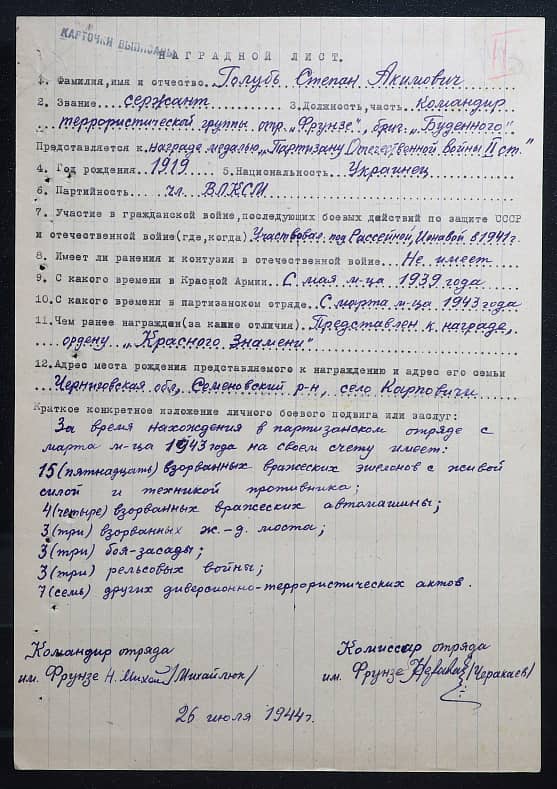 КАРТОЧКИ ВЫПИСАНЫ
НАГРАДНОЙ ЛИСТ.
1. Фамилия,имя и отчество Голубь Степан Акимович
2. Звание сержант 3.Должность,часть командир
террористической группы отр. „Фрунзе", бриг. „Буденного"
Представляется к награде медалью „Партизану Отечественной войны II ст."
4. Год рождения 1919 5.Национальность Украинец
6. Партийность чл. ВЛКСМ
7. Участие в гражданской войне,последующих боевых действий по защите СССР
и отечественной войне(где,когда) Участвовал под Рассейной, Ионавой в 1941г.
8. Имеет ли ранения и контузия в отечественной войне Не имеет
9. С какого времени в Красной Армии С мая м-ца 1939 года
10.С какого времени в партизанском отряде С марта м-ца 1943 года
11.Чем ранее награжден(за какие отличия) Представлен к награде,
ордену „Красного Знамени"
12.Адрес места рождения представляемого к награждению и адрес его семьи
Черниговская обл, Семеновский р-н, село Карповичи
Краткое конкретное изложение личного боевого подвига или заслуг:
За время нахождения в партизанском отряде с
марта м-ца 1943 года на своем счету имеет:
15 (пятнадцать) взорванных вражеских эшелонов с живой
силой и техникой противника;
4 (четыре) взорванных вражеских автомашины;
3 (три) взорванных ж.-д. моста;
3 (три) боя-засады;
3 (три) рельсовых войны;
7 (семь) других диверсионно-террористических актов.
Командир отряда
им. Фрунзе /Михайлюк/
Комиссар отряда
им. Фрунзе /Черакаев/
26 июля 1944г.